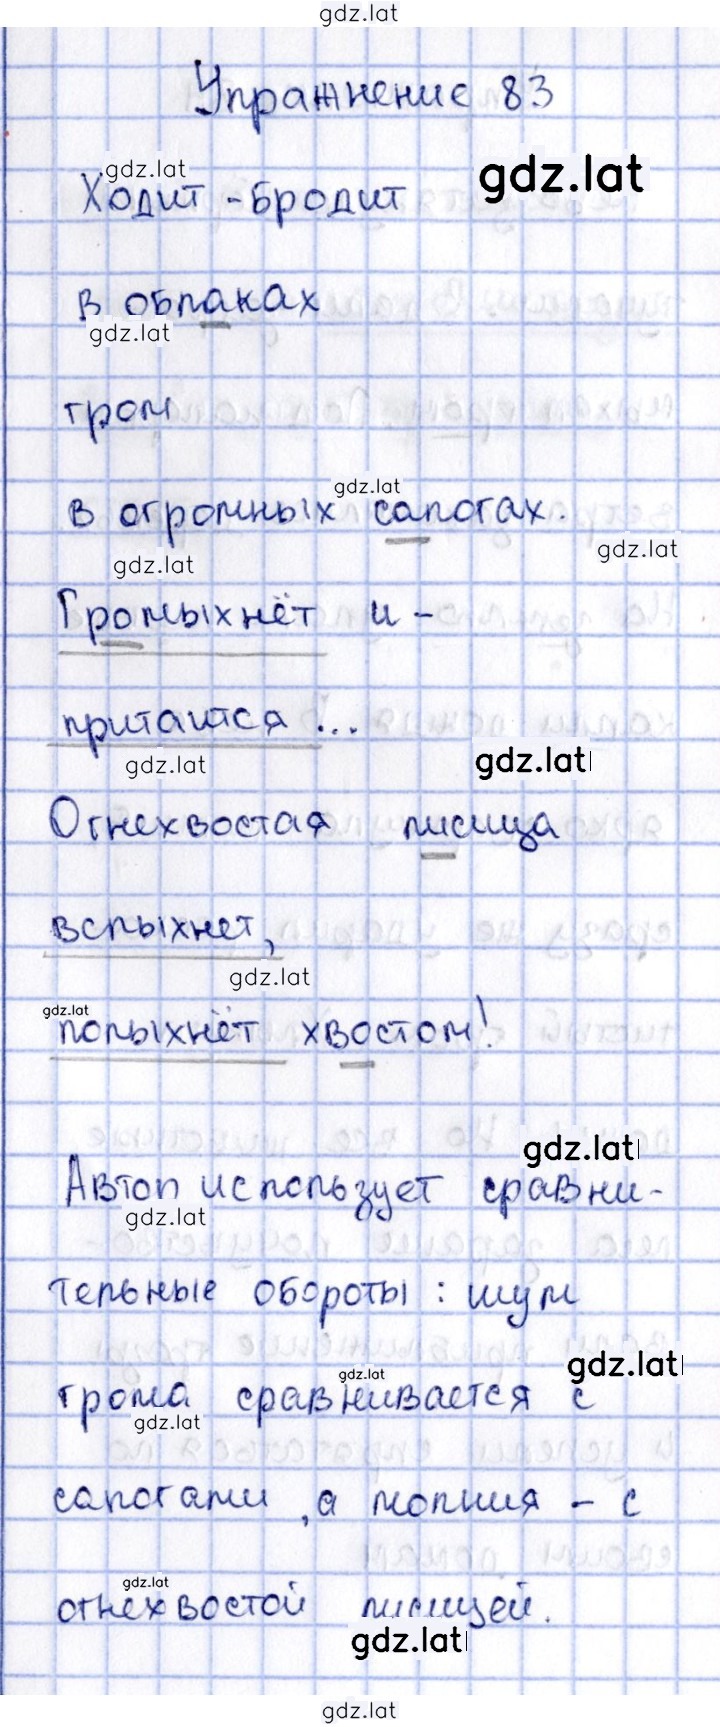 gdz.lat
Упражнение 83
gdz.lat
gdz.lat
Ходит - бродит
в облаках
gdz.lat
гром
gdz.lat
в огромных сапогах.
gdz.lat
gdz.lat
Громыхнёт и -
притаится ...
gdz.lat
gdz.lat
Огнехвостая лисица
вспыхнет,
gdz.lat
gdz.lat
полыхнёт хвостом!
gdz.lat
Автоп использует сравни-
gdz.lat
тельные обороты : шум
gdz.lat
gdz.lat
грома сравнивается с
gdz.lat
сапогами , а молния - с
gdz.lat
огнехвостой лисицей.
gdz.lat
gdz.lat